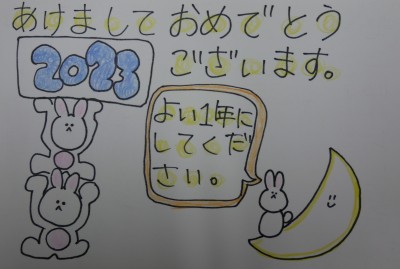 あけまして おめでとう
ございます。
2023
よい1年に
してくだ
さい。